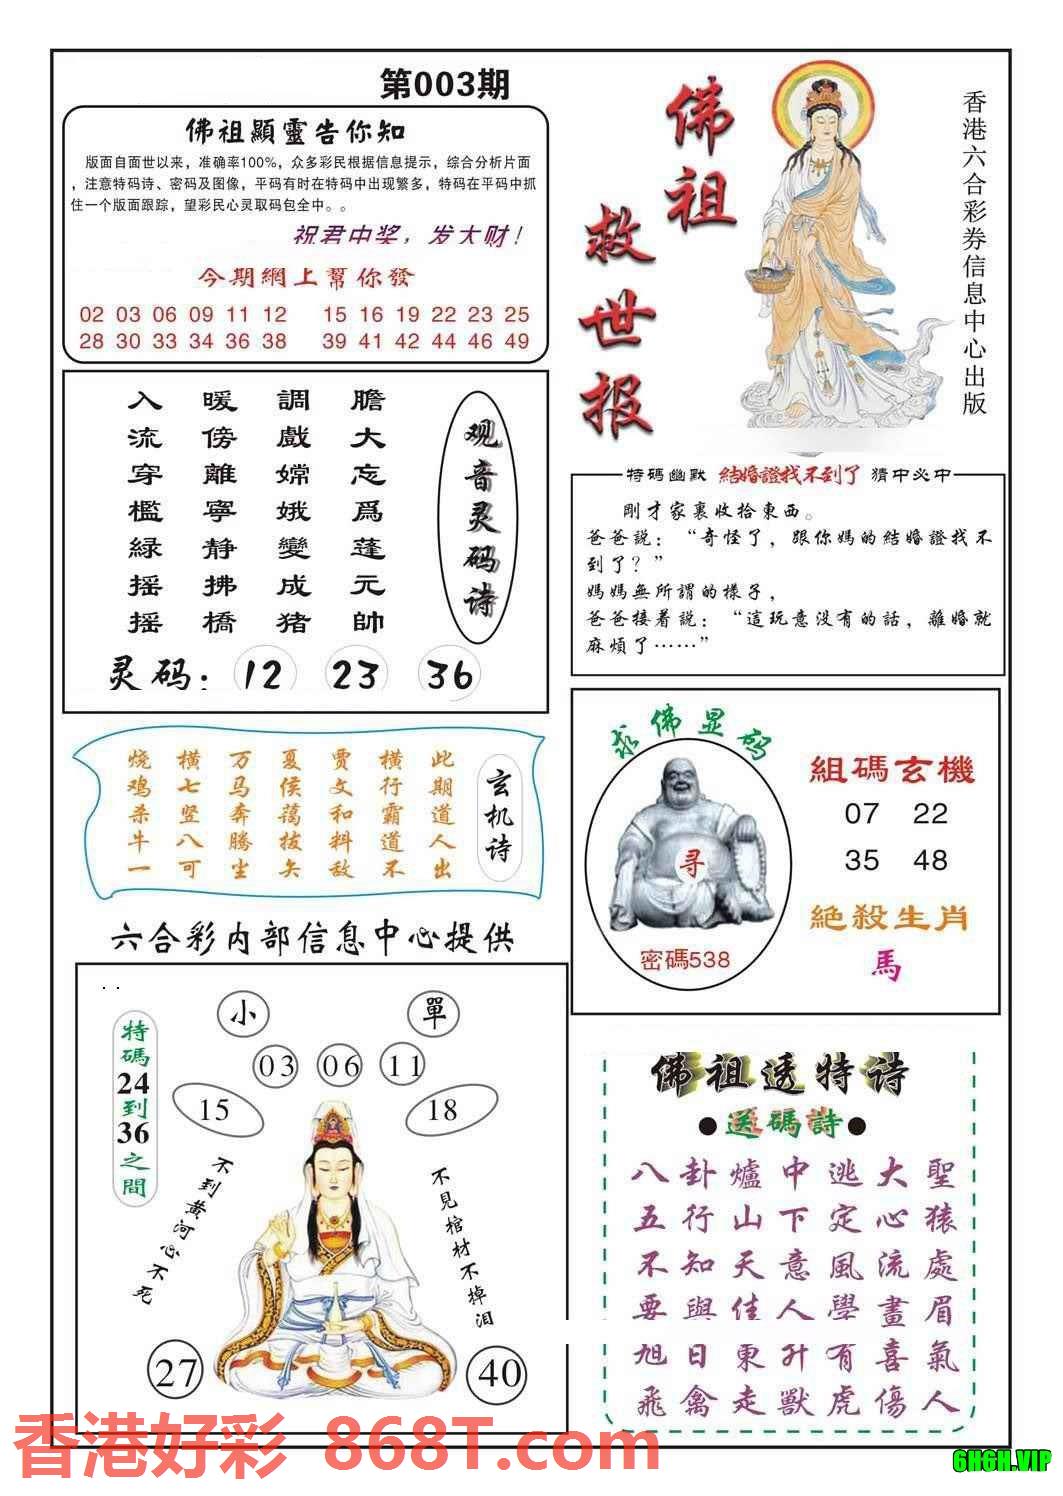 第003期
佛祖顯靈告你知
版面自面世以来，准确率100%，众多彩民根据信息提示，综合分析片面
，注意特码诗、密码及图像，平码有时在特码中出现繁多，特码在平码中抓
住一个版面跟踪，望彩民心灵取码包全中。。
祝君中奖，发大财！
今期網上幫你發
02 03 06 09 11 12 15 16 19 22 23 25
28 30 33 34 36 38 39 41 42 44 46 49
佛祖
救世报
香港六合彩券信息中心出版
观音灵码诗
膽大忘爲蓬元帥
調戲嫦娥變成猪
暖傍離寧静拂橋
入流穿檻緑摇摇
灵码：12 23 36
特碼幽默 結婚證找不到了 猜中必中
剛才家裏收拾東西。
爸爸説：“奇怪了，跟你媽的結婚證找不
到了？”
媽媽無所謂的樣子，
爸爸接着説：“這玩意没有的話，離婚就
麻煩了……”
玄机诗
此期道人出
横行霸道不
贾文和料敌
夏侯蔼拔矢
万马奔腾坐
横七竖八可
烧鸡杀牛一
求佛显码
寻
密碼538
組碼玄機
07 22
35 48
絶殺生肖
馬
六合彩内部信息中心提供
特碼24到36之間
小 單
03 06 11
15 18
不到黄河心不死
不見棺材不掉泪
27 40
佛祖透特诗
●送碼詩●
八卦爐中逃大聖
五行山下定心猿
不知天意風流處
要與佳人學畫眉
旭日東升有喜氣
飛禽走獸虎傷人
香港好彩 868T.com
6H6H.VIP